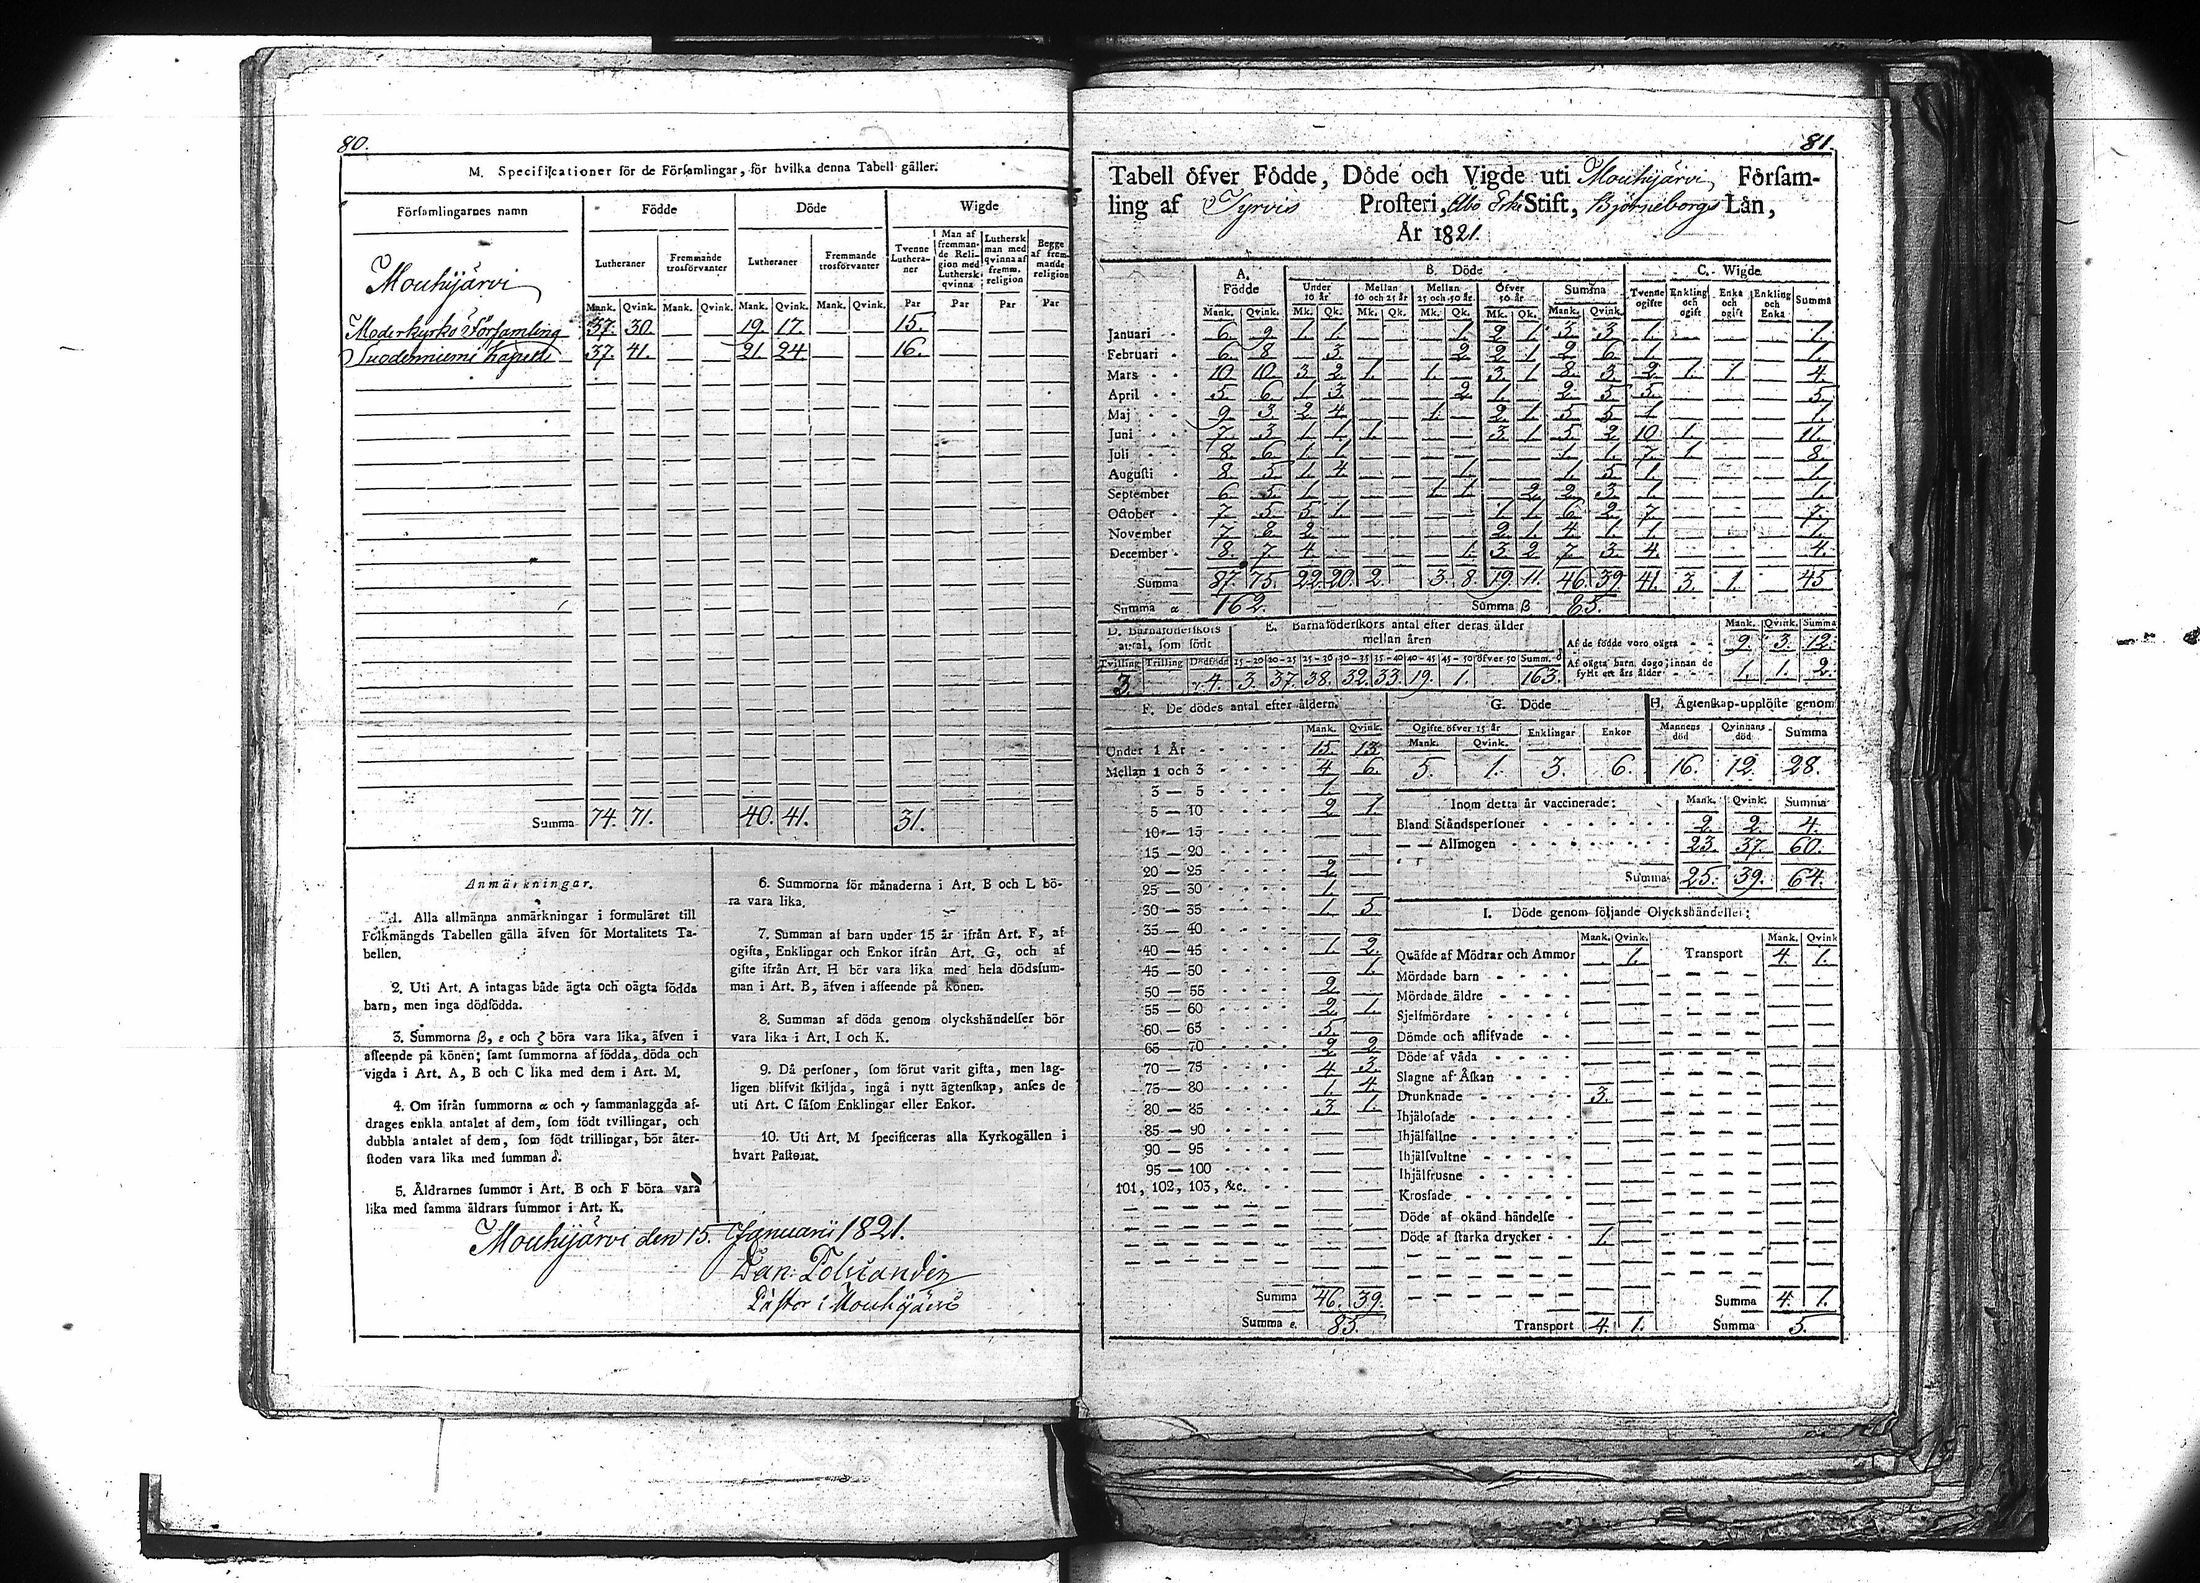 80.
M. Specificationer för de Församlingar, för hvilka denna Tabell gäller.
Församlingarnes namn Födde Döde Wigde
Lutheraner Fremmande trosförvanter Lutheraner Fremmande trosförvanter Tvenne Lutheraner Man af fremmande Religion med Luthersk qvinna Luthersk man med qvinna af fremm. religion Begge af fremmande religion
Mank. Qvink. Mank. Qvink. Mank. Qvink. Mank. Qvink. Par Par Par Par
Mouhijärvi
Moderkyrko Församling 37. 30. 19. 17. 15.
Suodenniemi Kapell 37. 41. 21. 24. 16.
Summa 74. 71. 40. 41. 31.
Anmärkningar.
1. Alla allmänna anmärkningar i formuläret till
Folkmängds Tabellen gälla äfven för Mortalitets Ta-
bellen.
2. Uti Art. A intagas både ägta och oägta födda
barn, men inga dödfödda.
3. Summorna β, ε och ζ böra vara lika, äfven i
afseende på könen; samt summorna af födda, döda och
vigda i Art. A, B och C lika med dem i Art. M.
4. Om ifrån summorna α och γ sammanlaggda af-
drages enkla antalet af dem, som födt tvillingar, och
dubbla antalet af dem, som födt trillingar, bör åter-
stoden vara lika med summan δ.
5. Åldrarnes summor i Art. B och F böra vara
lika med samma åldrars summor i Art. K.
6. Summorna för månaderna i Art. B och L bö-
ra vara lika.
7. Summan af barn under 15 år ifrån Art. F, af
ogifta, Enklingar och Enkor ifrån Art. G, och af
gifte ifrån Art. H bör vara lika med hela dödssum-
man i Art. B, äfven i afseende på könen.
8. Summan af döda genom olyckshändelser bör
vara lika i Art. I och K.
9. Då personer, som förut varit gifta, men lag-
ligen blifvit skiljda, ingå i nytt ägtenskap, anses de
uti Art. C såsom Enklingar eller Enkor.
10. Uti Art. M specificeras alla Kyrkogällen i
hvart Pastorat.
Mouhijärvi den 15. Januarii 1821.
Dan: Polviander
Pastor i Mouhijärvi
81.
Tabell öfver Födde, Döde och Vigde uti Mouhijärvi Försam-
ling af Tyrvis Prosteri, Åbo Erke Stift, Björneborgs Län,
År 1821.
A. Födde B. Döde C. Wigde
Under 10 år Mellan 10 och 25 år Mellan 25 och 50 år. Öfver 50 år. Summa Tvenne ogifte Enkling och ogift Enka och ogift Enkling och Enka Summa
Mank. Qvink. Mk. Qk. Mk. Qk. Mk. Qk. Mk. Qk. Mank. Qvink.
Januari 6. 9. 1. 1. 1. 2. 1. 3. 3. 1. 1.
Februari 6. 8. 3. 2. 2. 1. 2. 6. 1. 1.
Mars 10. 10. 3. 2. 1. 1. 3. 1. 8. 3. 2. 1. 1. 4.
April 5. 6. 1. 3. 2. 1. 2. 5. 5. 5.
Maj 9. 3. 2. 4. 1. 2. 1. 5. 5. 1. 1.
Juni 7. 3. 1. 1. 1. 3. 1. 5. 2. 10. 1. 11.
Juli 8. 6. 1. 1. 1. 1. 7. 1. 8.
Augusti 8. 5. 1. 4. 1. 1. 5. 1. 1.
September 6. 5. 1. 1. 1. 2. 2. 3. 1. 1.
October 7. 5. 5. 1. 1. 1. 6. 2. 7. 7.
November 7. 8. 2. 2. 1. 4. 1. 1. 1.
December 8. 7. 4. 1. 3. 2. 7. 3. 4. 4.
Summa 87. 75. 22. 20. 2. 3. 8. 19. 11. 46. 39. 41. 3. 1. 45
Summa α 162. Summa β 85.
D. Barnaföderskors antal, som födt
Tvilling Trilling Dödfödde
3. 4.
E. Barnaföderskors antal efter deras ålder mellan åren
15-20 20-25 25-30 30-35 35-40 40-45 45-50 öfver 50 Summ. δ
3. 37. 38. 32. 33. 19. 1. 163.
Mank. Qvink. Summa
Af de födde voro oägta 9. 3. 12.
Af oägta barn dogo innan de fyllt ett års ålder 1. 1. 2.
F. De dödes antal efter åldern.
Mank. Qvink.
Under 1 År 15. 13.
Mellan 1 och 3 4. 6.
3 — 5 1.
5 — 10 2. 1.
10 — 15
15 — 20
20 — 25 2.
25 — 30 1.
30 — 35 1. 5.
35 — 40
40 — 45 1. 2.
45 — 50 1.
50 — 55 2.
55 — 60 2. 1.
60 — 65 5.
65 — 70 2. 2.
70 — 75 4. 3.
75 — 80 1. 4.
80 — 85 3. 1.
85 — 90
90 — 95
95 — 100
101, 102, 103, &c.
Summa 46. 39.
Summa ε. 85.
G. Döde
Ogifte öfver 15 år Enklingar Enkor
Mank. Qvink.
5. 1. 3. 6.
H. Ägtenskap upplöste genom
Mannens död Qvinnans död Summa
16. 12. 28.
Inom detta år vaccinerade: Mank. Qvink. Summa
Bland Ståndspersoner 2. 2. 4.
— — Allmogen 23. 37. 60.
Summa 25. 39. 64.
I. Döde genom följande Olyckshändelser:
Mank. Qvink. Mank. Qvink
Quäfde af Mödrar och Ammor 1. Transport 4. 1.
Mördade barn
Mördade äldre
Sjelfmördare
Dömde och aflifvade
Döde af våda
Slagne af Åskan
Drunknade 3.
Ihjälosade
Ihjälfallne
Ihjälsvultne
Ihjälfrusne
Krossade
Döde af okänd händelse
Döde af starka drycker 1.
Summa 4. 1.
Transport 4. 1. Summa 5.